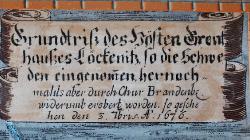 Grundtriß des Hösten Grent
hauses Löckenitz, so die Schwe
den eingenom̄en, hernoch-
mahls aber durch Chur Brandenb:
widerumb erobert worden. so gesche
hen den 3. 7bris. A.º 1676.